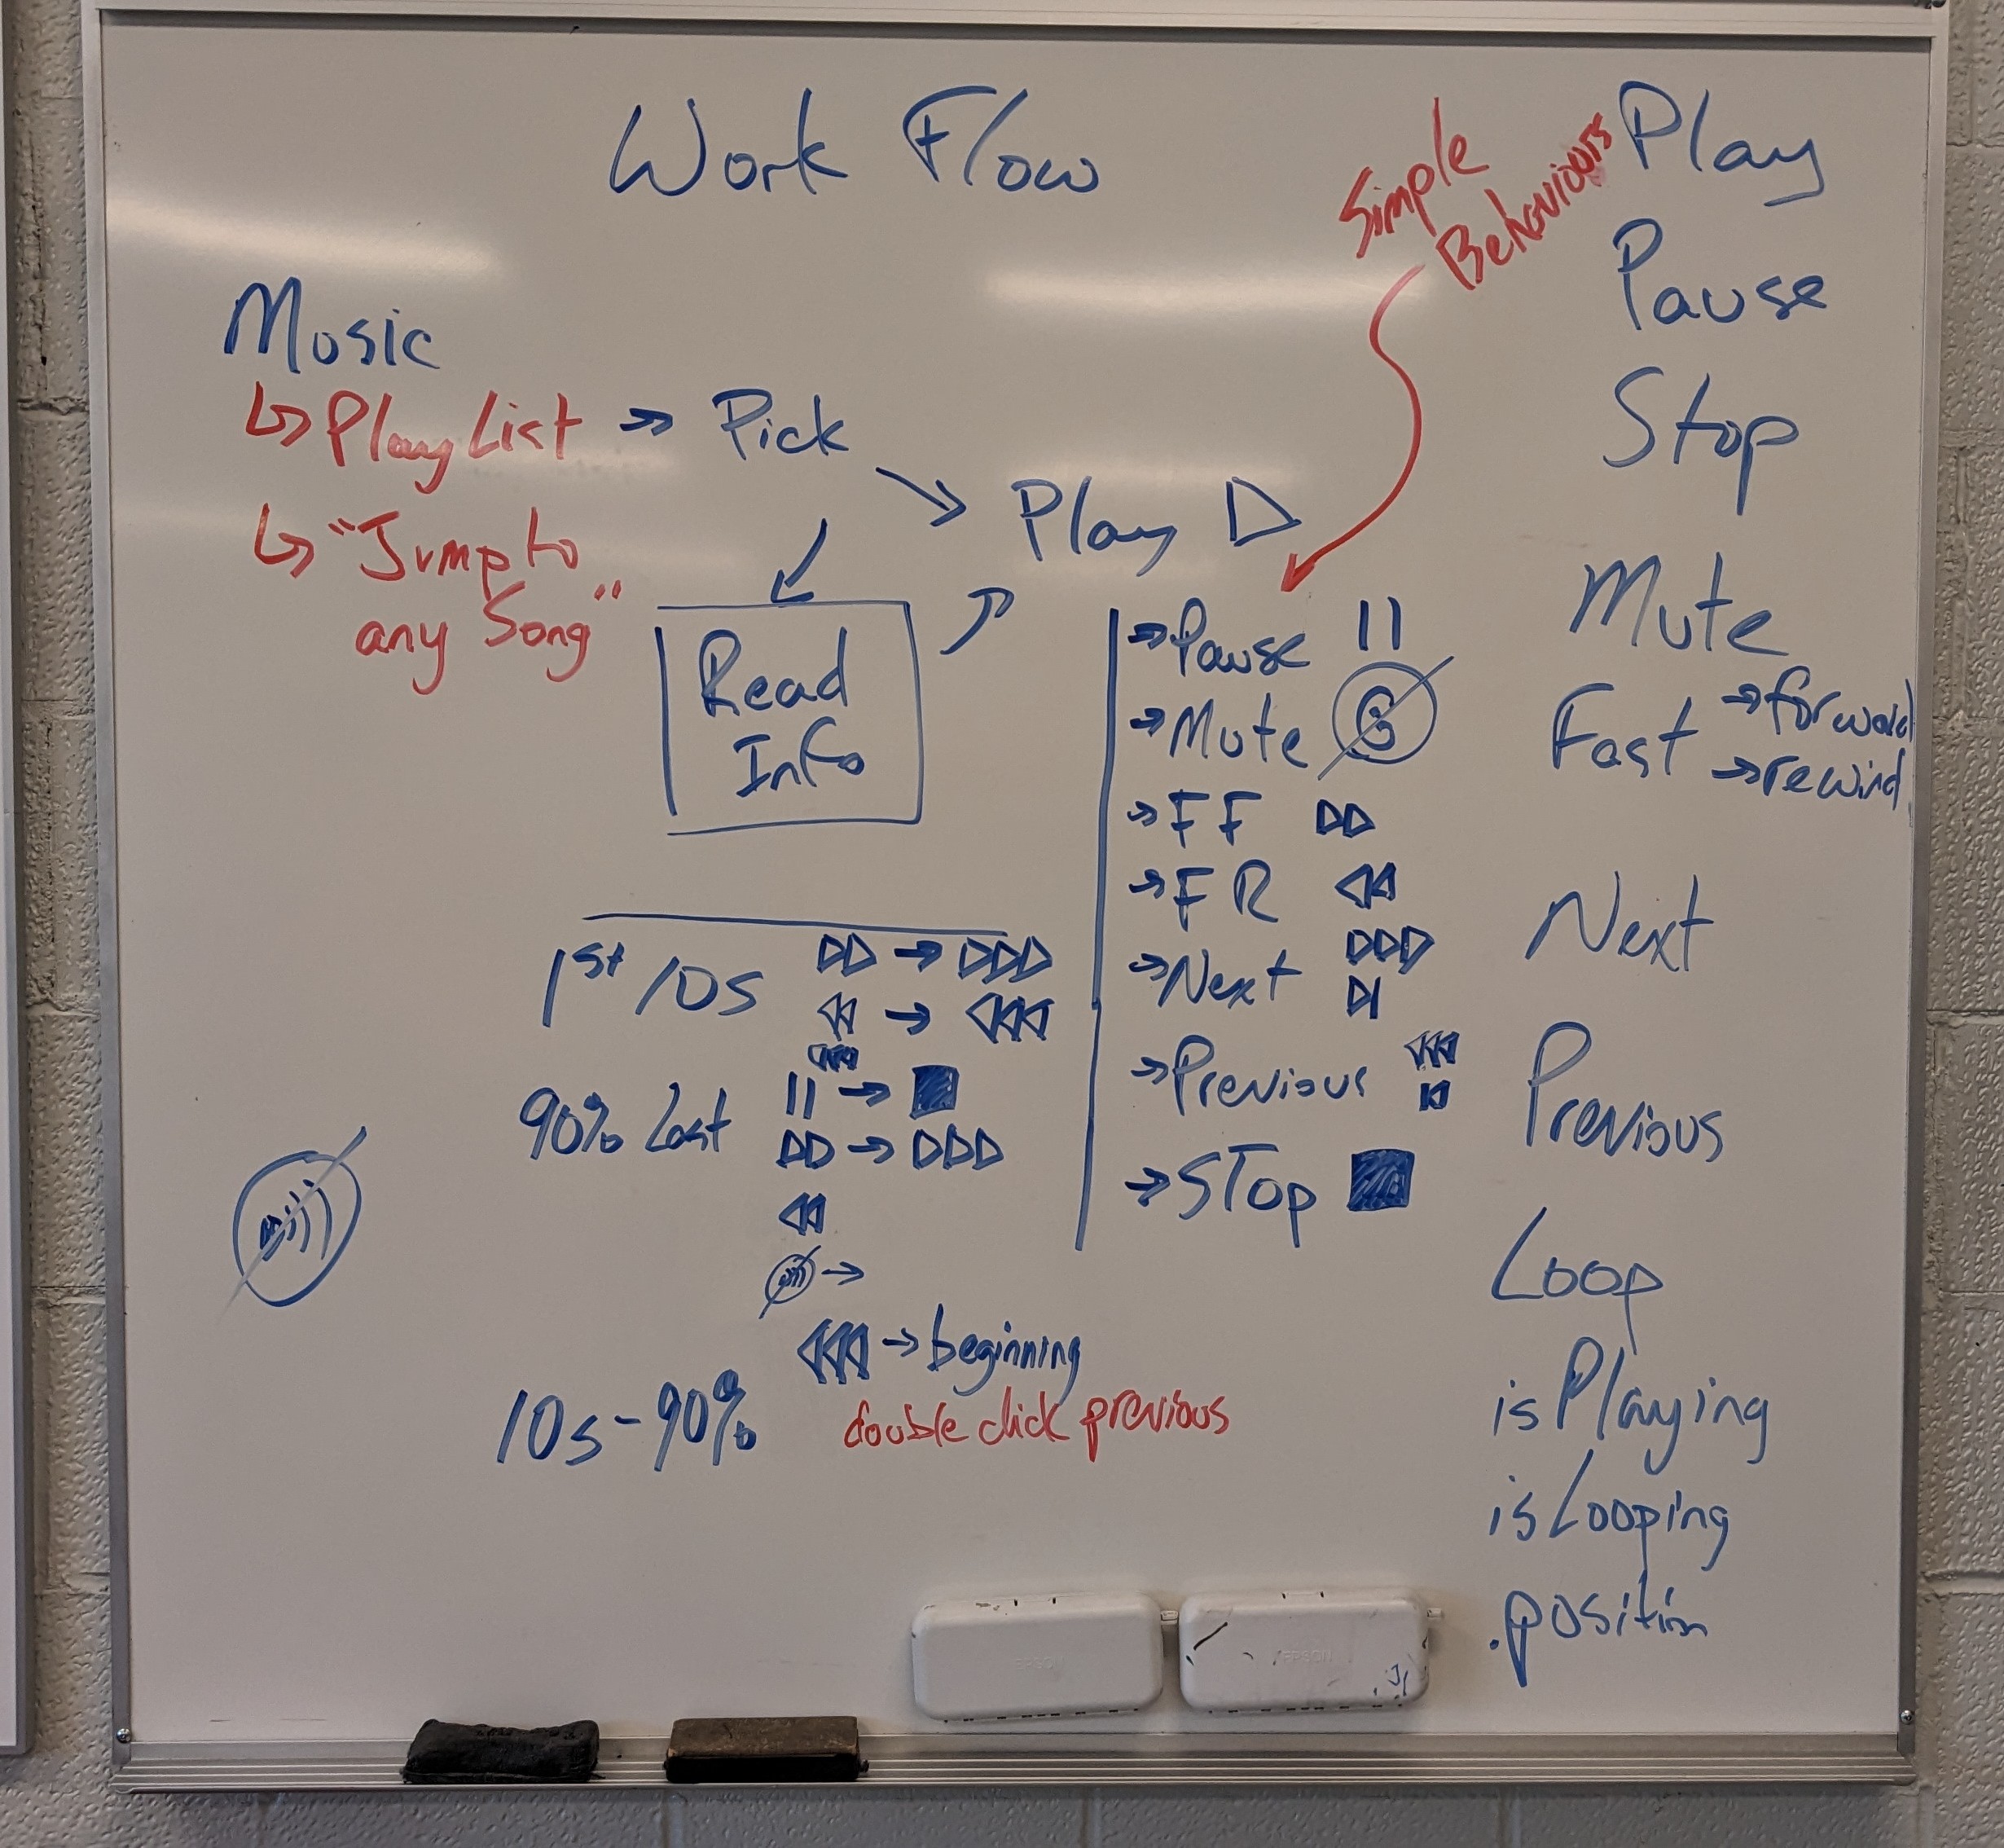 Work Flow
Music
PlayList → Pick
"Jump to
any Song"
Play
Read
Info
Simple
Behaviours
→ Pause
→ Mute
→ FF
→ FR
→ Next
→ Previous
→ STop
1st 10s
90% Last
→ beginning
10s - 90%
double click previous
Play
Pause
Stop
Mute
Fast → forward
→ rewind
Next
Previous
Loop
isPlaying
isLooping
.position
EPSON
EPSON